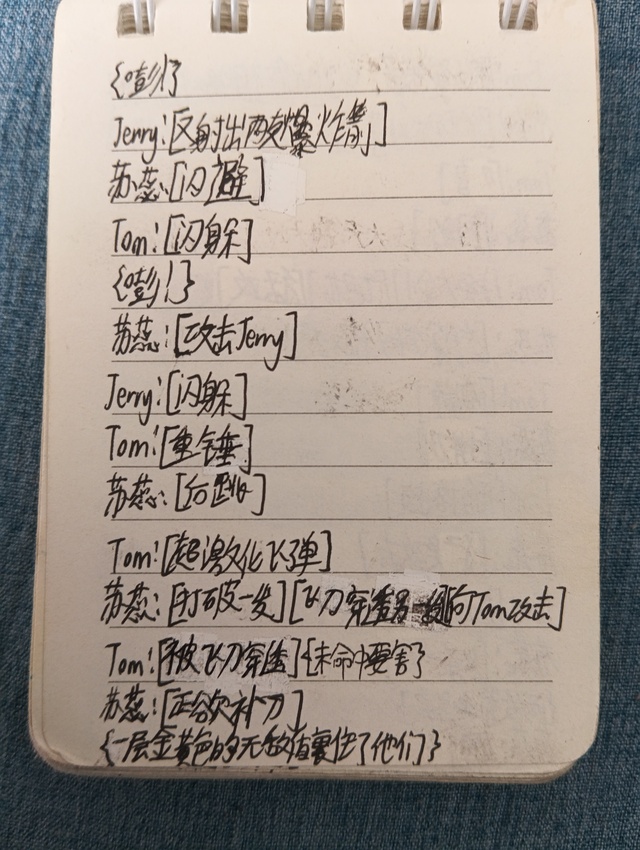 {嘭!}
Jerry:[反射出两支爆炸箭]
苏蕊:[闪避]
Tom:[闪躲]
{嘭!}
苏蕊:[攻击Jerry]
Jerry:[闪躲]
Tom:[重锤]
苏蕊:[后跳]
Tom:[超激化飞弹]
苏蕊:[打破一发][飞刀穿透另一颗向Tom攻击]
Tom:[被飞刀穿透]{未命中要害}
苏蕊:[正欲补刀]
{一层金黄色的无敌盾裹住了他们}